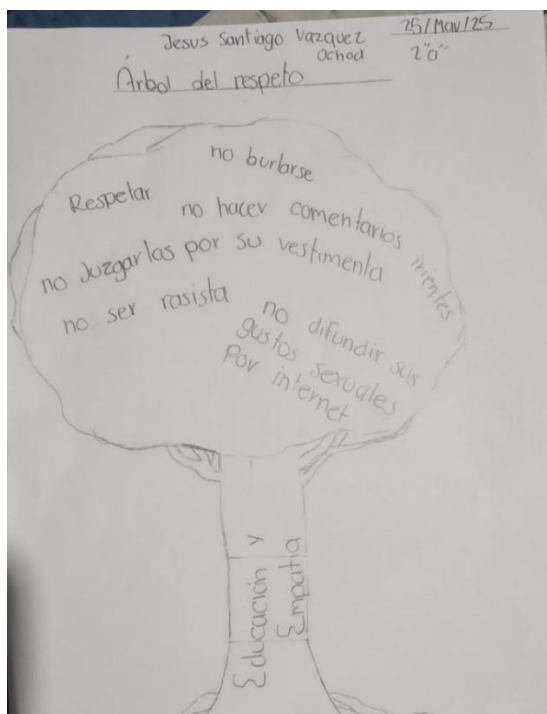 Jesus Santiago Vazquez
Ochoa
25/Mav/25
2"a"
Árbol del respeto
no burlarse
Respetar
no hacer comentarios irientes
no Juzgarlas por su vestimenta
no ser rasista
no difundir sus
gustos sexuales
Por internet
Educación y
Empatia